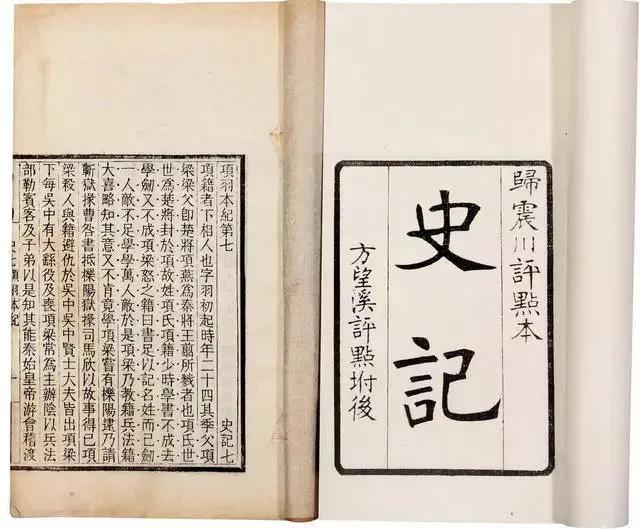 歸震川評點本
史記
方望溪評點坿後
項羽本紀第七 史記七
項籍者下相人也字羽初起時年二十四其季父項
梁梁父卽楚將項燕為秦將王翦所戮者也項氏世
世為楚將封於項故姓項氏項籍少時學書不成去
學劍又不成項梁怒之籍曰書足以記名姓而已劍
一人敵不足學學萬人敵於是項梁乃教籍兵法籍
大喜略知其意又不肯竟學項梁嘗有櫟陽逮乃請
蘄獄掾曹咎書抵櫟陽獄掾司馬欣以故事得已項
梁殺人與籍避仇於吳中吳中賢士大夫皆出項梁
下每吳中有大繇役及喪項梁常為主辦陰以兵法
部勒賓客及子弟以是知其能秦始皇帝游會稽渡